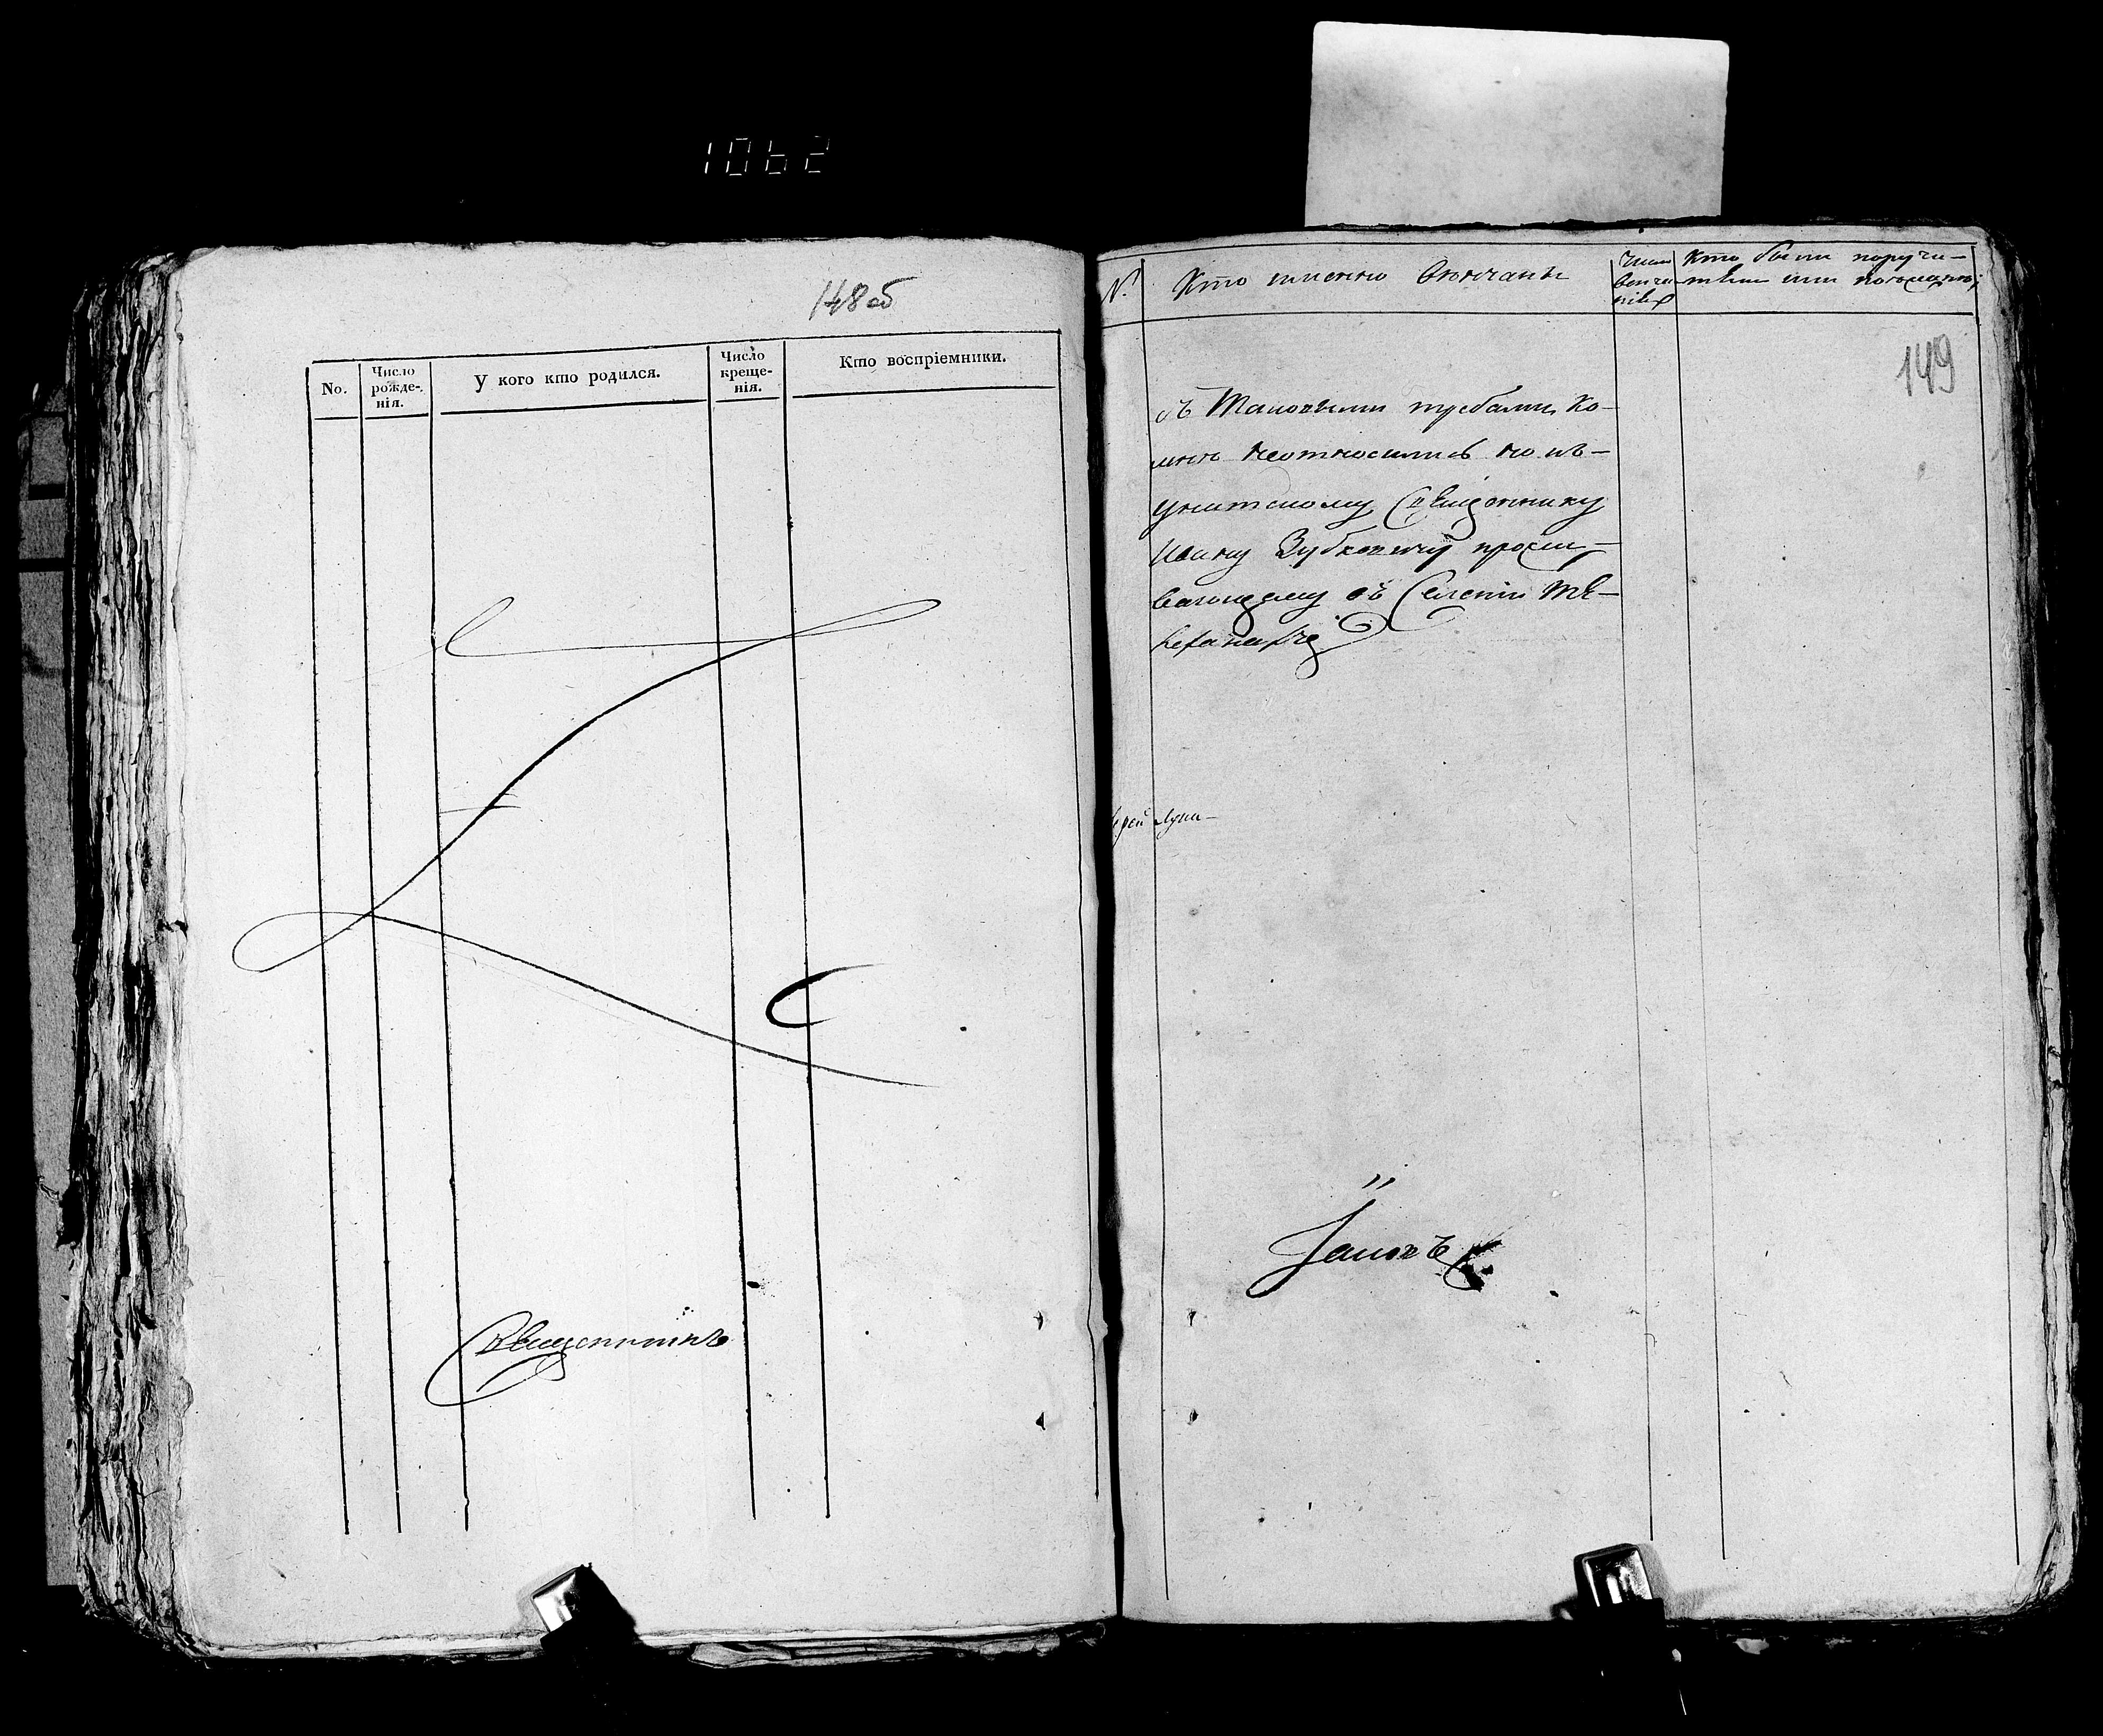 1062
148 об
No.
Число рожде-
нія.
У кого кто родился.
Число
креще-
нія.
Кто воспріемники.
Священникъ
№
Кто именно венчанъ
Число
венча
нія
Кто были поручи-
тели или поѣзжанѣ;
149
съ таковыми требами ко
мнѣ неотносились но къ
унитскому Священнику
Ивану Зубковичу прожи-
вающему въ Селеніи
Іерей Луки
Іаковъ